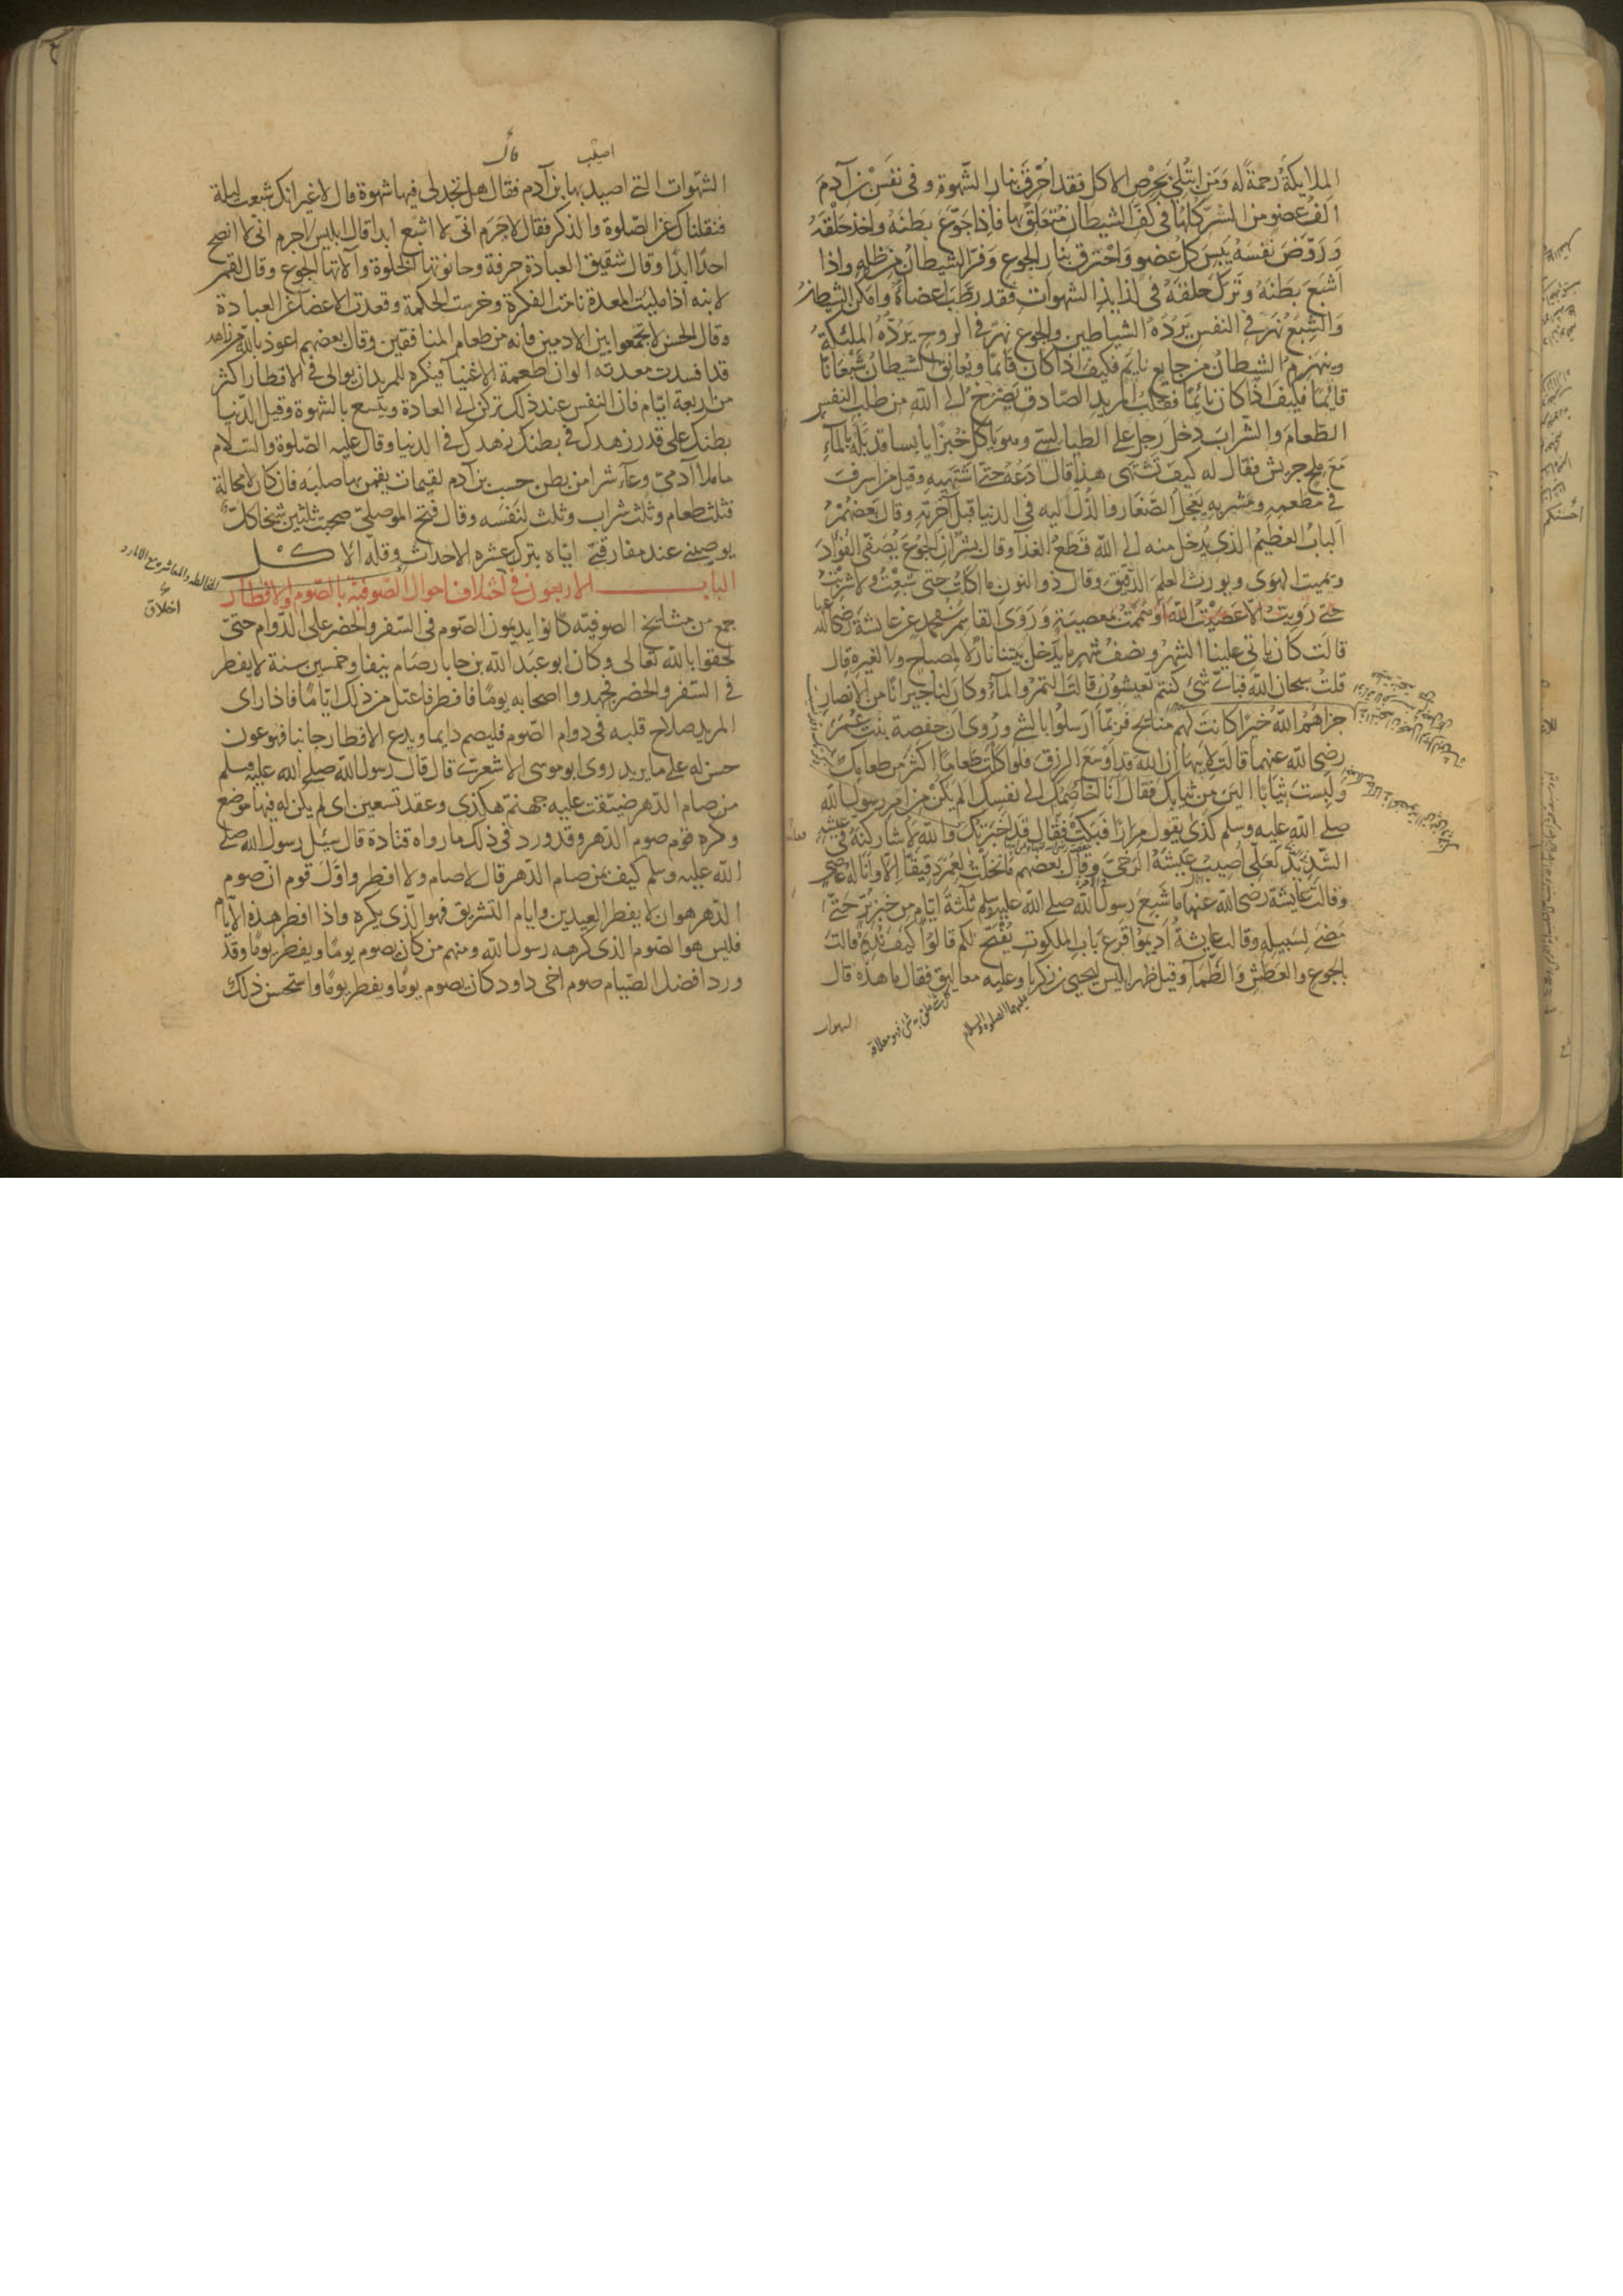 الملايكة رحمة له ومن ابتلي بحرص الاكل فقد احرق بنار الشهوة وفي نفس بن آدم
الف عضو من الشر كلها في كف الشيطان متعلق بها فاذا جوع بطنه واخذ حلقه
وروض نفسه يبس كل عضو واحترق بنار الجوع وفر الشيطان من ظله واذا
اشبع بطنه وترك حلقه في لذايذ الشهوات فقد رطب اعضاه وامكن الشيطان
والشبع نهر في النفس يرده الشياطين والجوع نهر في الروح يرده الملئكة
وينهزم الشيطان من جايع نايم فكيف اذا كان قائما ويعانق الشيطان شبعانا
قائما فكيف اذا كان نائما فقلب المريد الصادق يصرخ الى الله من طلب النفس
الطعام والشراب دخل رجل على الطيالسي وهو ياكل خبزا يابسا قد بله بالمآء
مع ملح جريش فقال له كيف تشتهي هذا قال ادعه حتى اشتهيه وقيل من اسرف
في مطعمه ومشربه يعجل الصغار والذل اليه في الدنيا قبل آخرته وقال بعضهم
الباب العظيم الذي يدخل منه الى الله قطع الغذا وقال بشر ان الجوع يصفي الفواد
ويميت الهوى ويورث العلم الدقيق وقال ذو النون ما اكلت حتى شبعت ولا شربت
حتى رويت الا عصيت الله او هممت بمعصية وروى القاسم بن محمد عن عايشة رضي الله عنها
قالت كان ياتي علينا الشهر ونصف شهر ما يدخل بيتنا نار لا لمصباح ولا لغيره قال
قلت سبحان الله فباي شئ كنتم تعيشون قالت التمر والمآء وكان لنا جيران من الانصار
جزاهم الله خيرا كانت لهم منائح فربما ارسلوا بالشئ وروي ان حفصة بنت عمر
رضي الله عنهما قالت لابيها ان الله قد اوسع الرزق فلو اكلت طعاما اكثر من طعامك
ولبست ثيابا الين من ثيابك فقال انا اخاصمك الى نفسك الم يكن من امر رسول الله
صلى الله عليه وسلم كذى يقول مرارا فبكت فقال قد اخبرتك والله لاشاركنه في عيشه
الشديد لعلي اصيب عيشه الرخي وقال بعضهم ما نخلت لعمر دقيقا الا وانا له عاص
وقالت عايشة رضي الله عنها ما شبع رسول الله صلى الله عليه وسلم ثلثة ايام من خبز بر حتى
مضى لسبيله وقالت عايشة اديموا قرع باب الملكوت يفتح لكم قالوا كيف نديم قالت
بالجوع والعطش والظمآ وقيل ظهر ابليس ليحيى بن زكريا وعليه معاليق فقال ما هذه قال
عليهما الصلوة والسلام
اصيب
قال
الشهوات التي اصيد بها بن آدم فقال هل تجد لي فيها شهوة قال لا غير انك شبعت ليلة
فثقلناك عن الصلوة والذكر فقال لا جرم اني لا اشبع ابدا قال ابليس لا جرم اني لا انصح
احدا ابدا وقال شقيق العبادة حرفة وحانوتها الخلوة وآلاتها الجوع وقال لقمن
لابنه اذا مليت المعدة نامت الفكرة وخرست الحكمة وقعدت الاعضا عن العبادة
وقال الحسن لا تجمعوا بين الادمين فانه من طعام المنافقين وقال بعضهم اعوذ بالله من زاهد
قد افسدت معدته الوان اطعمة الاغنيآ فيكره للمريد ان يوالي في الافطار اكثر
من اربعة ايام فان النفس عند ذلك تركن الى العادة ويتسع بالشهوة وقيل الدنيا
بطنك على قدر زهدك في بطنك زهدك في الدنيا وقال عليه الصلوة والسلام
ما ملا آدمي وعآء شرا من بطن حسب بن آدم لقيمات يقمن بها صلبه فان كان لا محالة
فثلث طعام وثلث شراب وثلث لنفسه وقال فتح الموصلي صحبت ثلثين شيخا كل
يوصيني عند مفارقتي اياه بترك عشره الاحداث وقلة الاكل
الباب الاربعون في اختلاف احوال الصوفية بالصوم والافطار
اخلاق
جمع من مشايخ الصوفية كانوا يديمون الصوم في السفر والحضر على الدوام حتى
لحقوا بالله تعالى وكان ابو عبد الله بن جابار صام نيفا وخمسين سنة لا يفطر
في السفر والحضر فجهدوا اصحابه يوما فافطر فاعتل من ذلك اياما فاذا راى
المريد صلاح قلبه في دوام الصوم فليصم دايما ويدع الافطار جانبا فهو عون
حسن له على ما يريد روى ابو موسى الاشعري قال قال رسول الله صلى الله عليه وسلم
من صام الدهر ضيقت عليه جهنم هكذى وعقد تسعين اى لم يكن له فيها موضع
وكره قوم صوم الدهر وقد ورد في ذلك ما رواه قتادة قال سئل رسول الله صلى
الله عليه وسلم كيف بمن صام الدهر قال لا صام ولا افطر واول قوم ان صوم
الدهر هو ان لا يفطر العيدين وايام التشريق فهو الذي يكره واذا افطر هذه الايام
فليس هو الصوم الذي كرهه رسول الله ومنهم من كان يصوم يوما ويفطر يوما وقد
ورد افضل الصيام صوم اخى داود كان يصوم يوما ويفطر يوما واستحسن ذلك